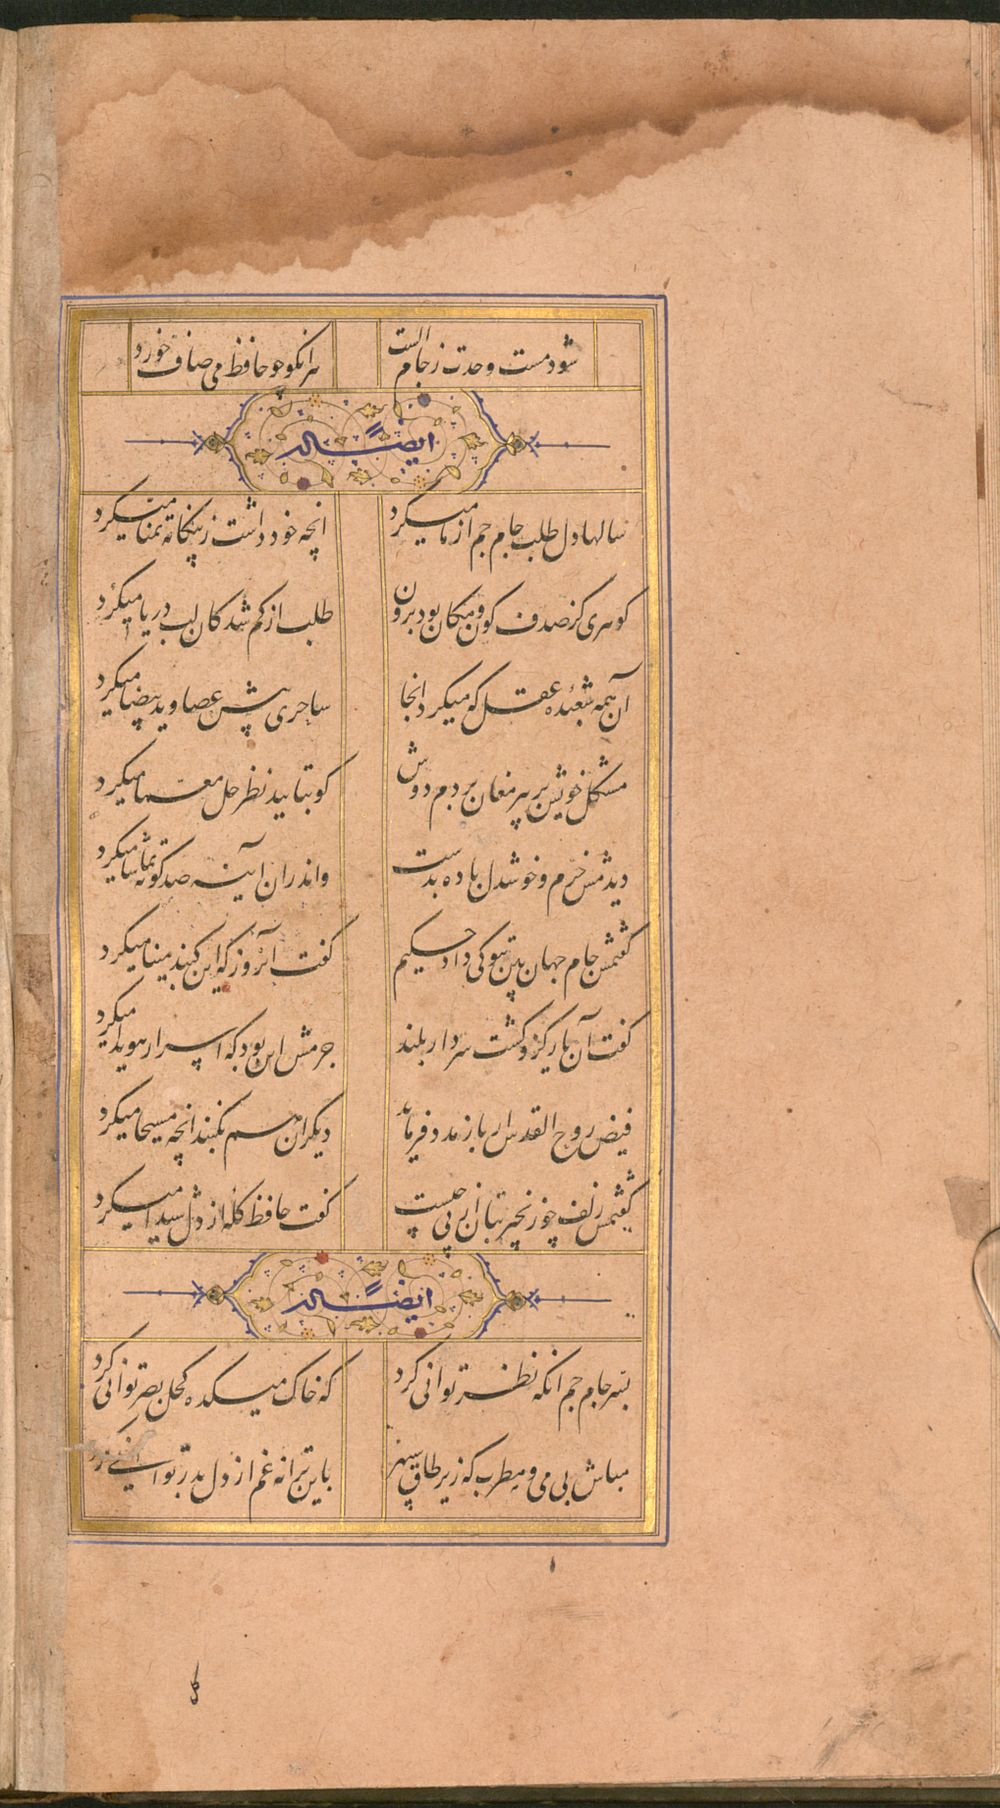 شود مست وحدت ز جام الست هر انکو چو حافظ می صاف خورد
ایضاً له
سالها دل طلب جام جم از ما میکرد انچه خود داشت ز بیکانه تمنا میکرد
کوهری کز صدف کون و مکان بود برون طلب از کم شدکان لب دریا میکرد
آن همه شعبده عقل که میکرد انجا ساحری پیش عصا و ید بیضا میکرد
مشکل خویش بر پیر مغان بردم دوش کو بتایید نظر حل معما میکرد
دیدمش خرم و خوشدل باده بدست واندران اینه صد کونه تماشا میکرد
کفتمش جام جهان بین بتو کی داد حکیم کفت آنروز که این کنبد مینا میکرد
کفت آن یار کزو کشت سر دار بلند جرمش این بود که اسرار هویدا میکرد
فیض روح القدس ار باز مدد فرماید دیکران هم بکنند انچه مسیحا میکرد
کفتمش زلف چو زنجیر بتان از پی چیست کفت حافظ کله از دل شیدا میکرد
ایضاً له
بسر جام جم انکه نظر توانی کرد که خاک میکده کحل بصر توانی کرد
مباش بی می و مطرب که زیر طاق سپهر باین ترانه غم از دل بدر توانی کرد